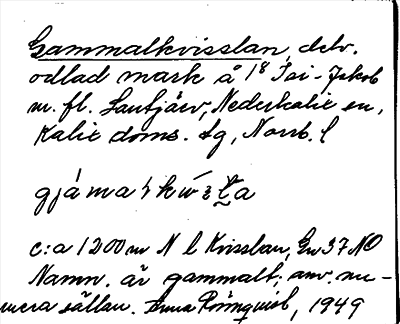 Gammalkvisslan, delv.
odlad mark å 1⁸ Isi-Jakob
m. fl. Lantjärv, Nederkalix sn,
Kalix doms. tg, Norrb. l
gjámal kẃ
c:a 1200 m N l Kvisslan, Gw 37 NO
Namn. är gammalt, anv. nu-
mera sällan. Anna Rönnqvist, 1949